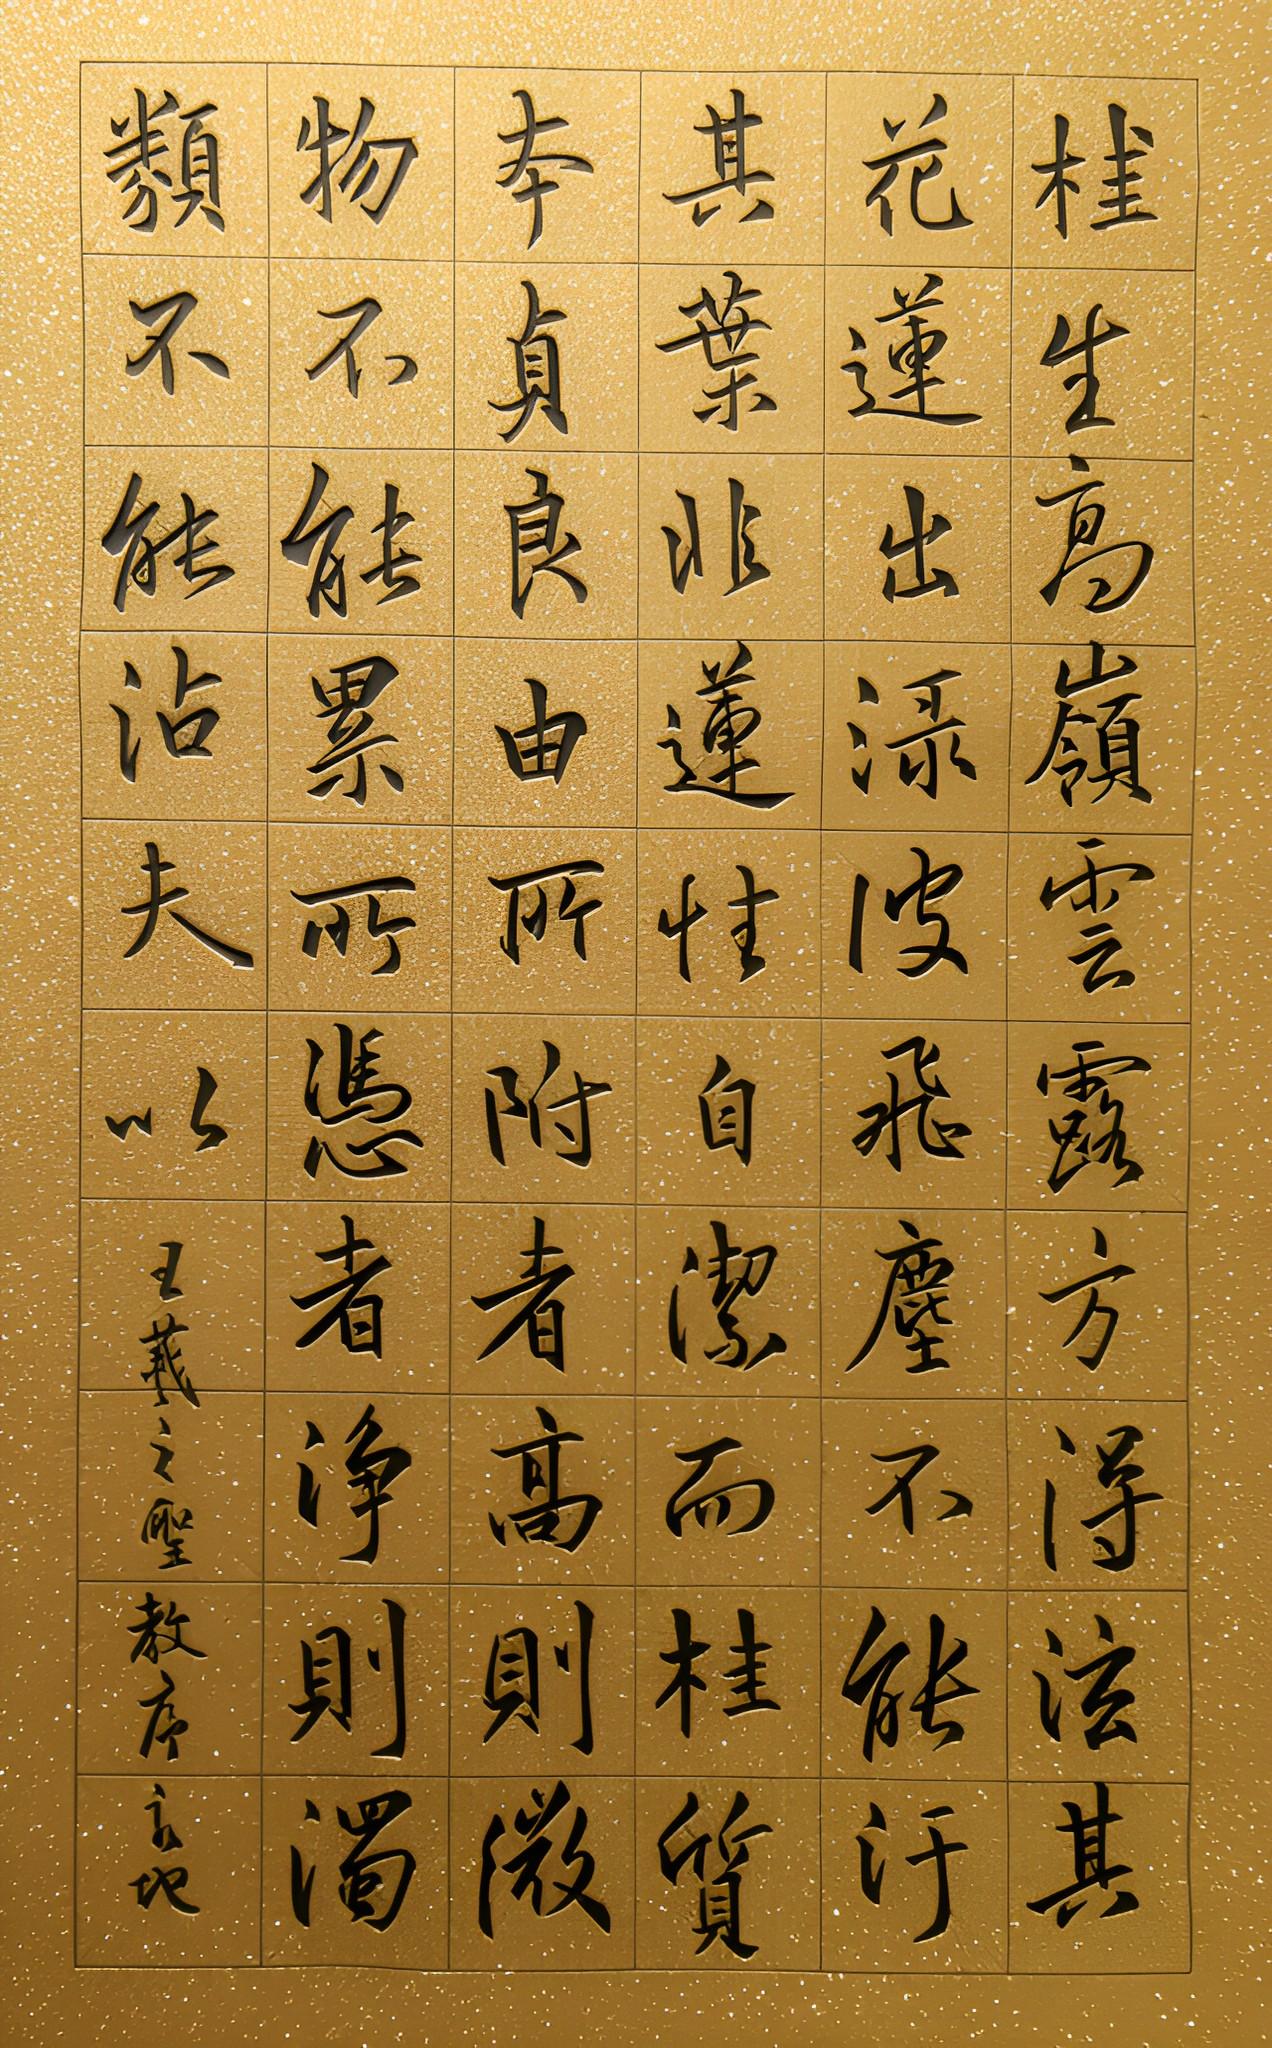 桂生高嶺雲露方得泫其
花蓮出渌波飛塵不能汙
其葉非蓮性自潔而桂質
本貞良由所附者高則微
物不能累所憑者浄則濁
類不能沾夫以
王羲之聖教序